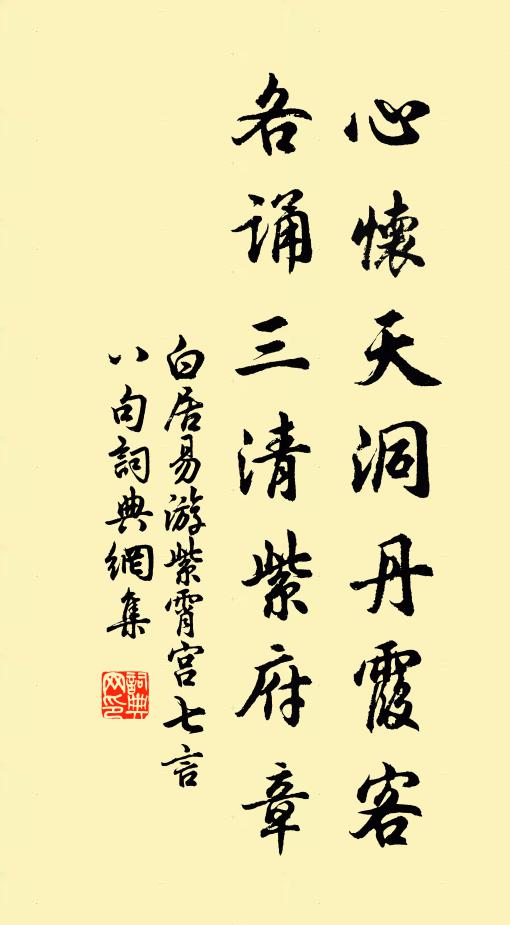 心懷天洞丹霞客
各誦三清紫府章
白居易游紫霄宮七言
八句詞典網集
詞典
网印